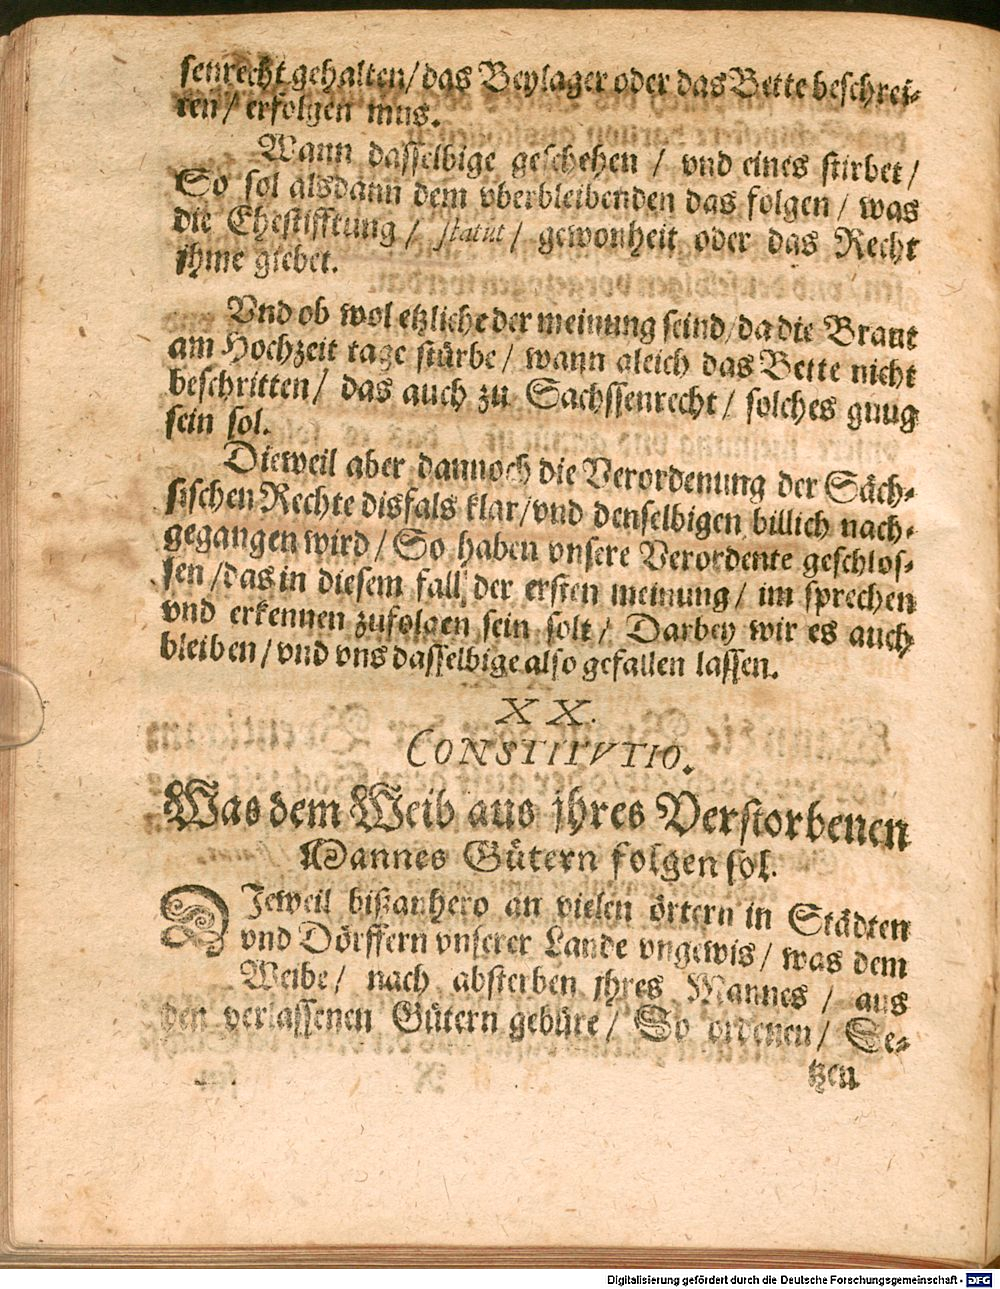 senrecht gehalten/das Beylager oder das Bette beschrei-
ten/ erfolgen mus.
Wann dasselbige geschehen / vnd eines stirbet/
So sol alsdann dem vberbleibenden das folgen/ was
die Ehestifftung/ statut/ gewonheit oder das Recht
jhme giebet.
Vnd ob wol etzliche der meinung seind/da die Braut
am Hochzeit tage stürbe/ wann gleich das Bette nicht
beschritten/ das auch zu Sachssenrecht/ solches gnug
sein sol.
Dieweil aber dannoch die Verordenung der Säch-
sischen Rechte disfals klar/vnd denselbigen billich nach-
gegangen wird/ So haben vnsere Verordente geschlos-
sen/das in diesem fall der ersten meinung/ im sprechen
vnd erkennen zufolgen sein solt/ Darbey wir es auch
bleiben/vnd vns dasselbige also gefallen lassen.
XX.
CONSTITVTIO.
Was dem Weib aus jhres Verstorbenen
Mannes Gütern folgen sol.
DJeweil bißanhero an vielen örtern in Städten
vnd Dörffern vnserer Lande vngewis/ was dem
Weibe/ nach absterben jhres Mannes / aus
den verlassenen Gütern gebüre/ So ordenen/ Se-
tzen
Digitalisierung gefördert durch die Deutsche Forschungsgemeinschaft - DFG